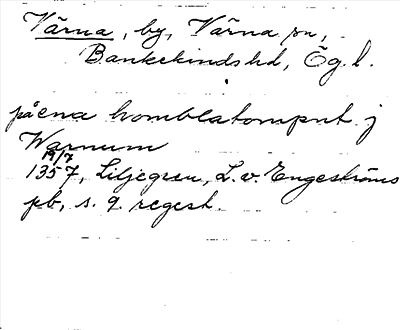 Värna, by, Värna sn,
Bankekinds hd, Ög. l.
på ena homblatompnt j
Warnum
19/7
1357, Liljegren, L. v. Engeströms
pb, s. 9. regest.